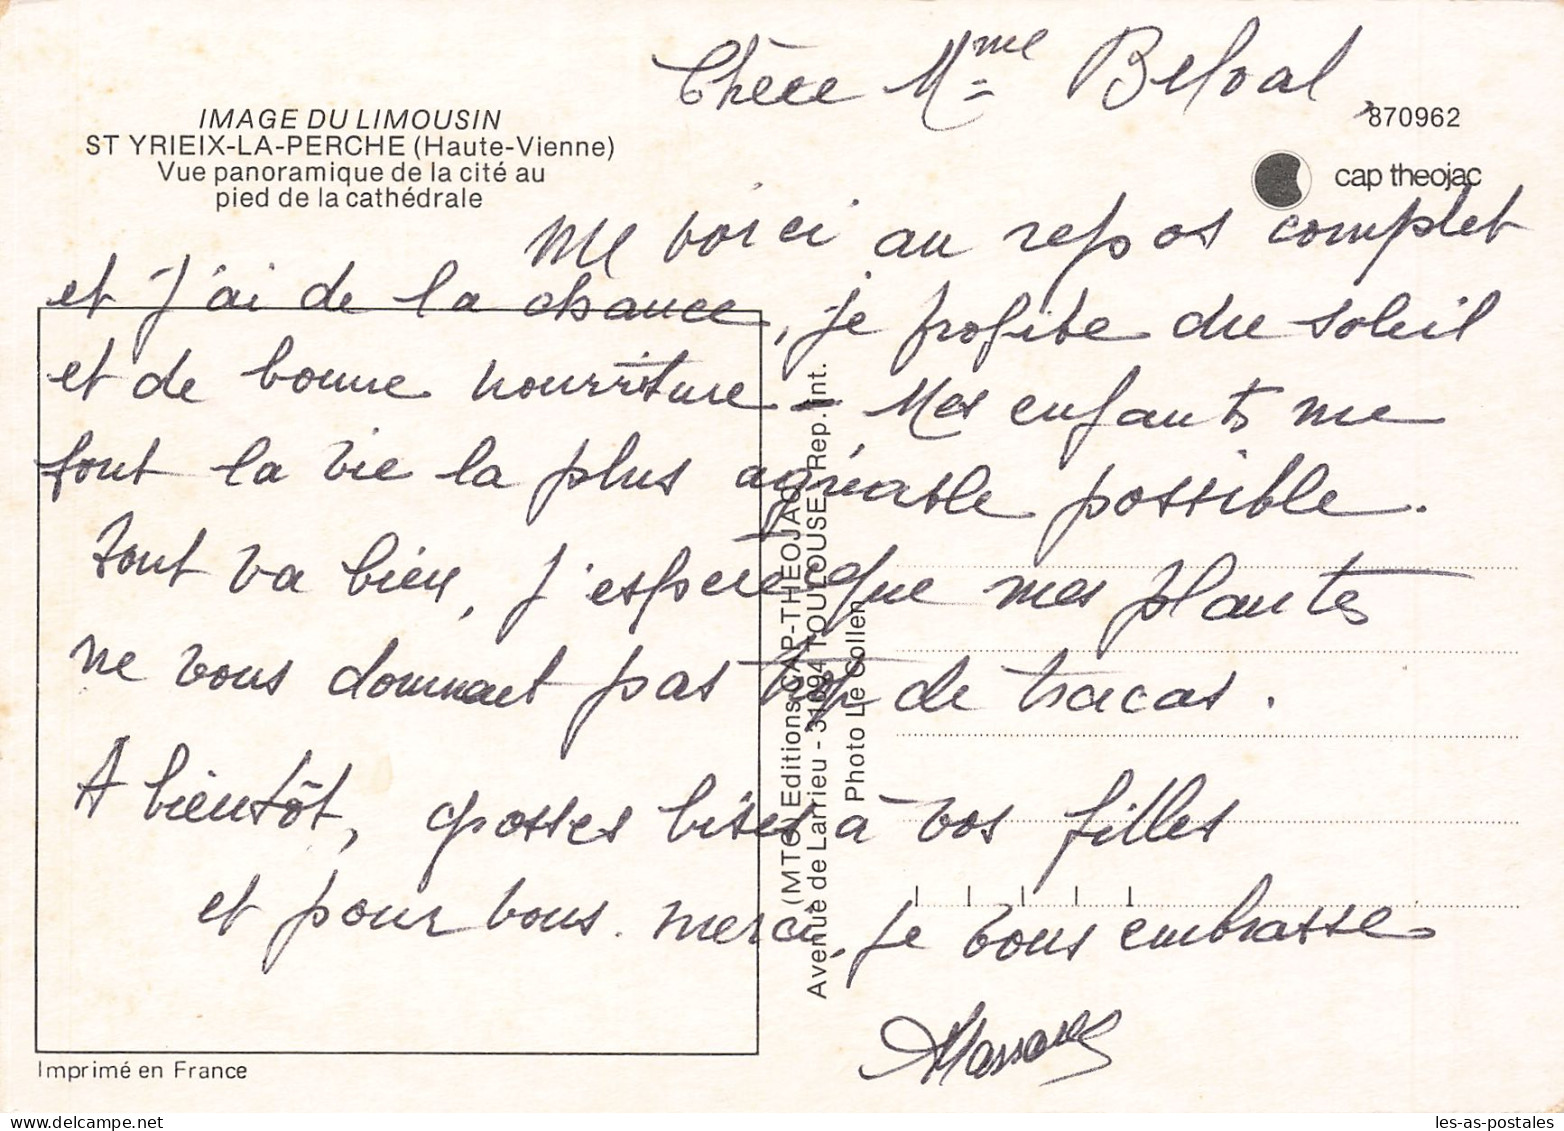 Chère Mme Belval
870962
IMAGE DU LIMOUSIN
ST YRIEIX-LA-PERCHE (Haute-Vienne)
Vue panoramique de la cité au
pied de la cathédrale
cap theojac
Me voici au repos complet
et j'ai de la chance, je profite du soleil
et de bonne nourriture - Mes enfants me
font la vie la plus agréable possible.
Tout va bien, j'espère que mes plantes
ne vous donnent pas trop de tracas.
A bientôt, grosses bises à vos filles
et pour vous. merci, je vous embrasse
(MTG) Editions CAP-THEOJAC
Avenue de Larrieu - 31094 TOULOUSE Rep. Int.
Photo Le Collen
Imprimé en France
les-as-postales